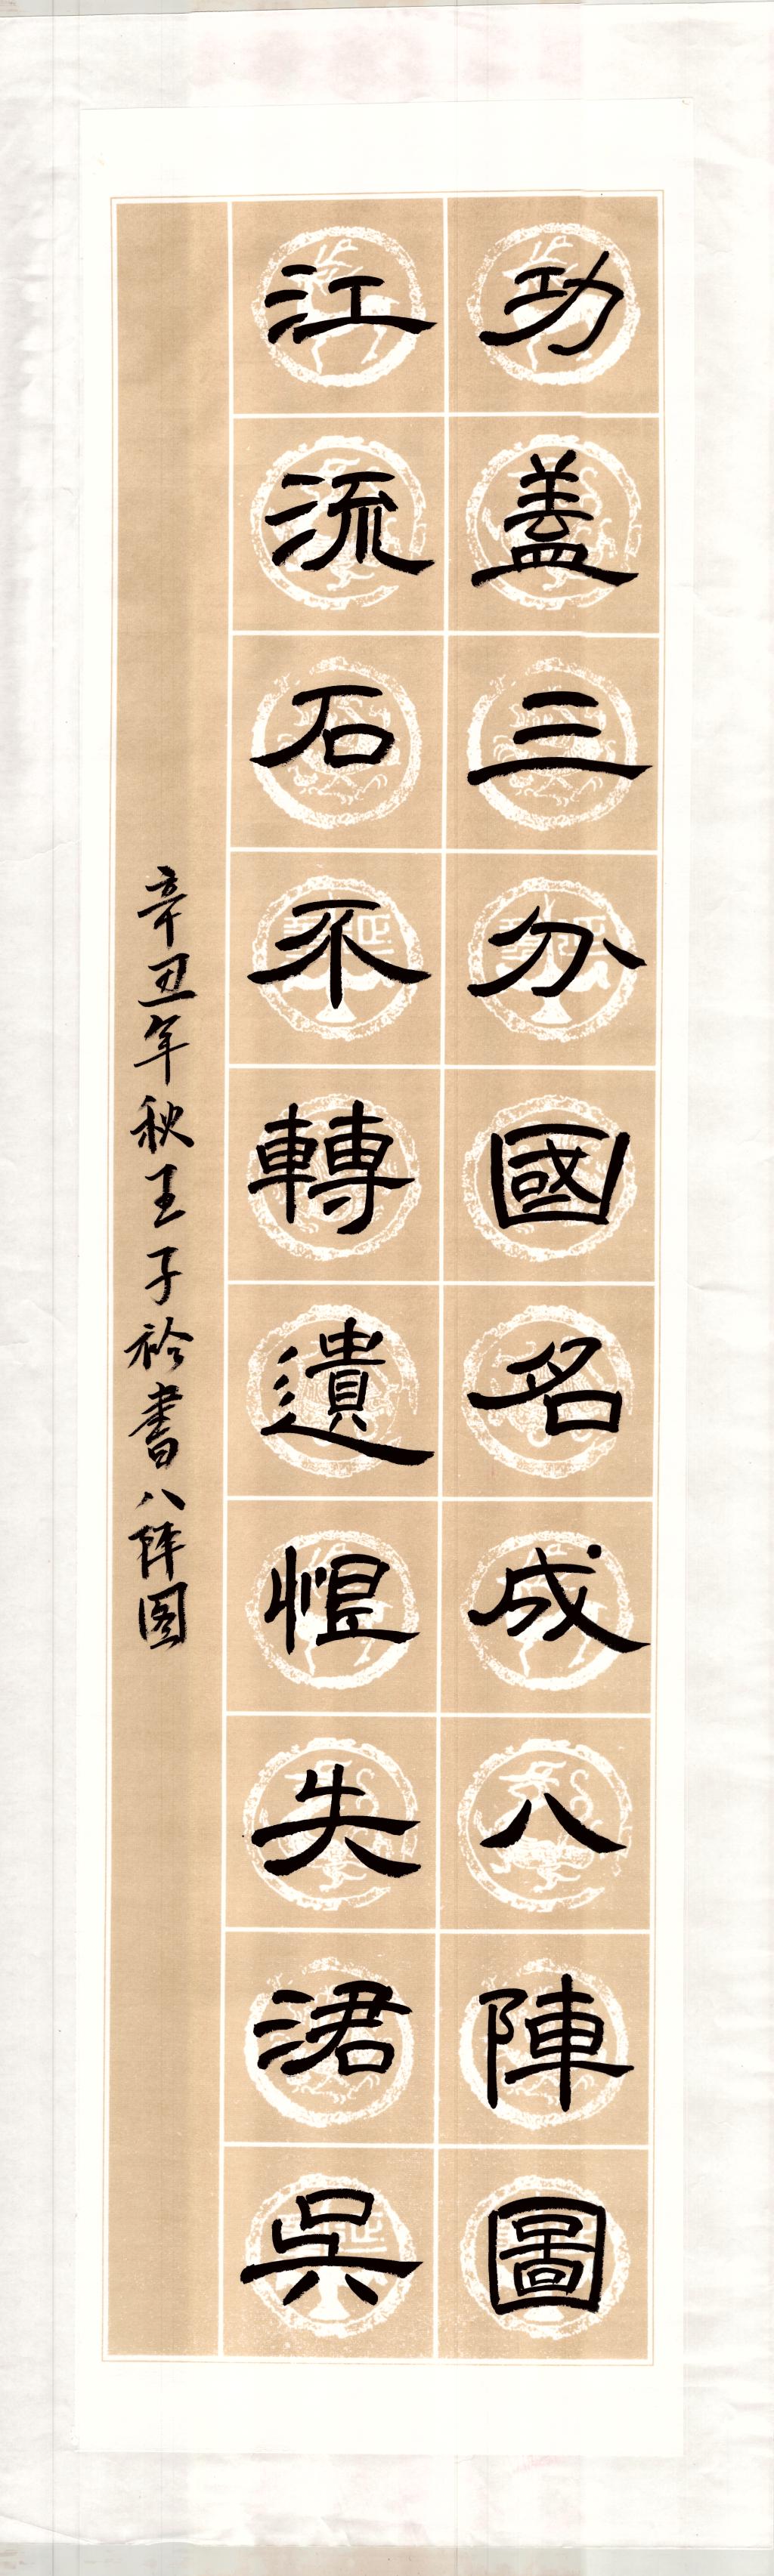 功盖三分國名成八陣圖
江流石不轉遺恨失涒吳
辛丑年秋王子衿書八阵图